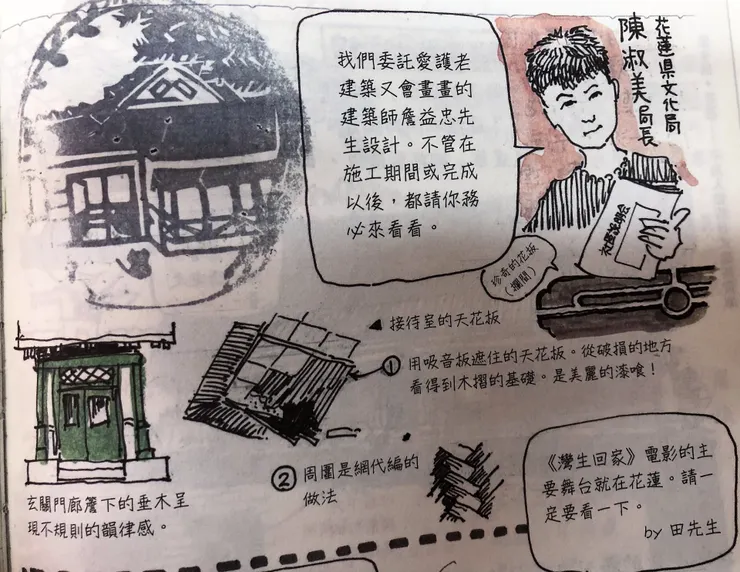 我們委託愛護老
建築又會畫畫的
建築師詹益忠先
生設計。不管在
施工期間或完成
以後，都請你務
必來看看。
花蓮県文化局
陳淑美局長
社區說明会
珍奇的花板
（欄間）
▲ 接待室的天花板
① 用吸音板遮住的天花板。從破損的地方
看得到木摺的基礎。是美麗的漆喰！
② 周圍是網代編的
做法
玄關門廊簷下的垂木呈
現不規則的韻律感。
《灣生回家》電影的主
要舞台就在花蓮。請一
定要看一下。
by 田先生